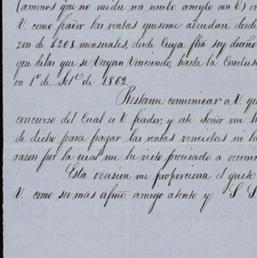 (a menos que no medie un nuevo arreglo con V) on
V. como fiador las rentas que se me adeudan desde
zon de $208 mensuales, desde cuya fha soy dueño
que de las que se vayan venciendo, hasta la conclus
en 1º de Set.e de 1862.
Restame comunicar a V q
concurso del cual es V fiador, y de Señor mi
de dicho para pagar las rentas vencidas ni l
razon por la cual me he visto precisado a ocurrir
Esta ocasion me proporciona el gusto
V. como su mas afmo amigo atento y S. S.